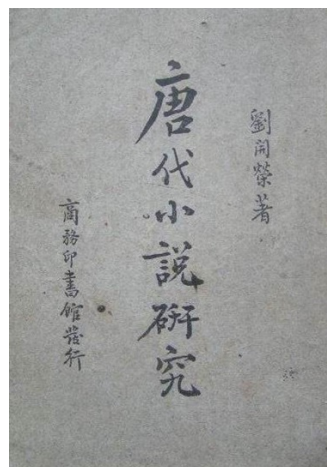 劉開榮著
唐代小說研究
商務印書館發行